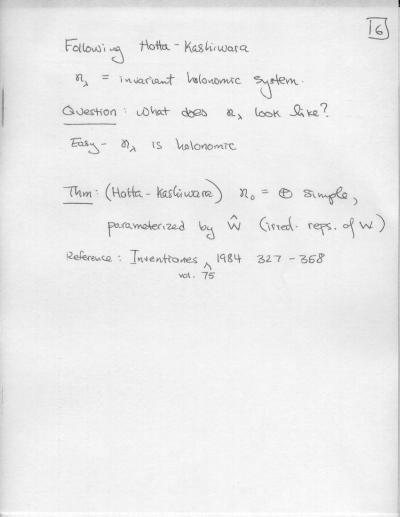 16
Following Hotta-Kashiwara
𝔫_λ = invariant holonomic system.
Question: What does 𝔫_λ look like?
Easy- 𝔫_λ is holonomic
Thm: (Hotta-Kashiwara) 𝔫_0 = ⊕ simple,
parameterized by Ŵ (irred. reps. of W)
Reference: Inventiones ^ 1984 327-358
vol. 75